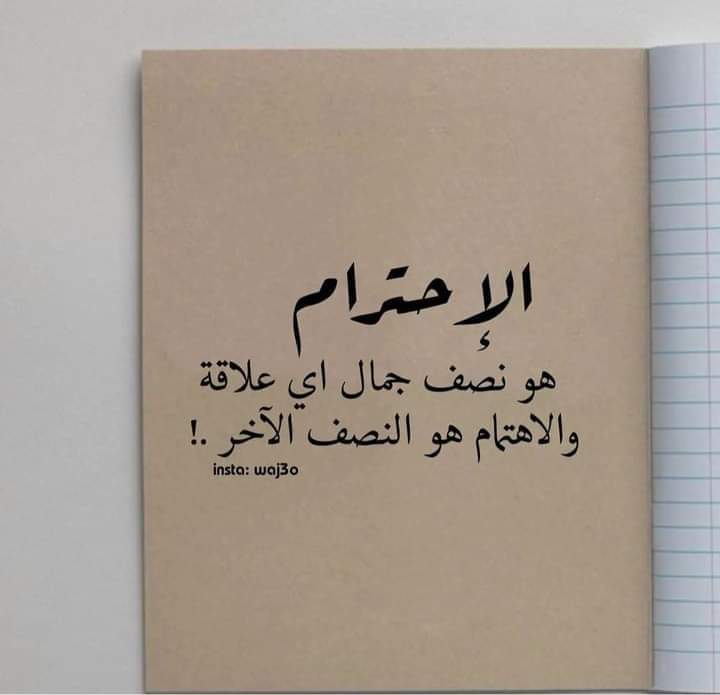 الإحترام
هو نصف جمال اي علاقة
والاهتمام هو النصف الآخر .!
insta: waj3o